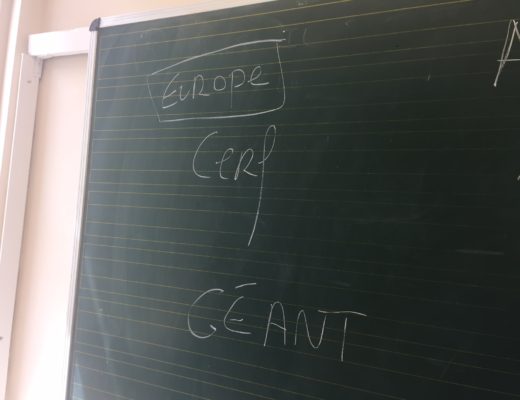 EUROPE
Cerf
GÉANT
A